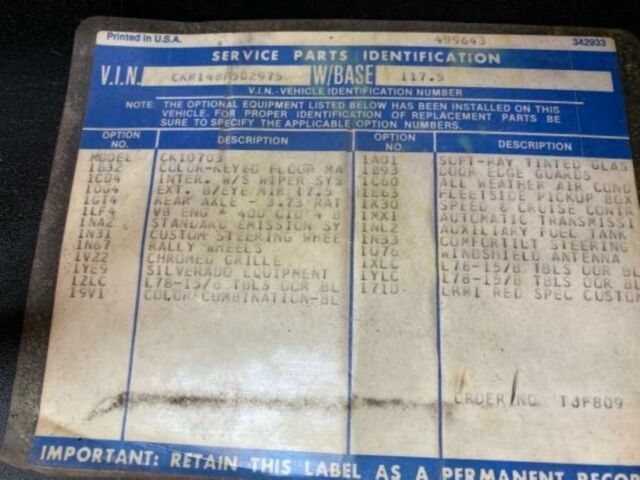 Printed in U.S.A. 499643 342933
SERVICE PARTS IDENTIFICATION
V.I.N. CKR146F502975 W/BASE 117.5
V.I.N.-VEHICLE IDENTIFICATION NUMBER
NOTE: THE OPTIONAL EQUIPMENT LISTED BELOW HAS BEEN INSTALLED ON THIS
VEHICLE. FOR PROPER IDENTIFICATION OF REPLACEMENT PARTS BE
SURE TO SPECIFY THE APPLICABLE OPTION NUMBERS.
OPTION NO. DESCRIPTION OPTION NO. DESCRIPTION
MODEL CK10703
1B32 COLOR-KEYED FLOOR MA
1C04 INTER. W/S WIPER SYS
1DG4 EXT. B/EYE MIR (7.5
1GT4 REAR AXLE - 3.73 RAT
1LF4 V8 ENG * 400 CID 4 B
1NA2 STANDARD EMISSION SY
1N31 CUSTOM STEERING WHEE
1N67 RALLY WHEELS
1V22 CHROMED GRILLE
1YE9 SILVERADO EQUIPMENT
1ZLC L78-15/B TBLS OOR BL
19V1 COLOR COMBINATION-BL
1A01 SOFT-RAY TINTED GLAS
1B93 DOOR EDGE GUARDS
1C60 ALL WEATHER AIR COND
1E63 FLEETSIDE PICKUP BOX
1K30 SPEED & CRUISE CONTR
1MX1 AUTOMATIC TRANSMISSI
1NL2 AUXILIARY FUEL TANK
1N33 COMFORTILT STEERING
1U76 WINDSHIELD ANTENNA
1XLC L78-15/B TBLS OOR BL
1YLC L78-15/B TBLS OOR BL
171D RED SPEC CUSTOM
ORDER NO TJF809
IMPORTANT: RETAIN THIS LABEL AS A PERMANENT RECOR